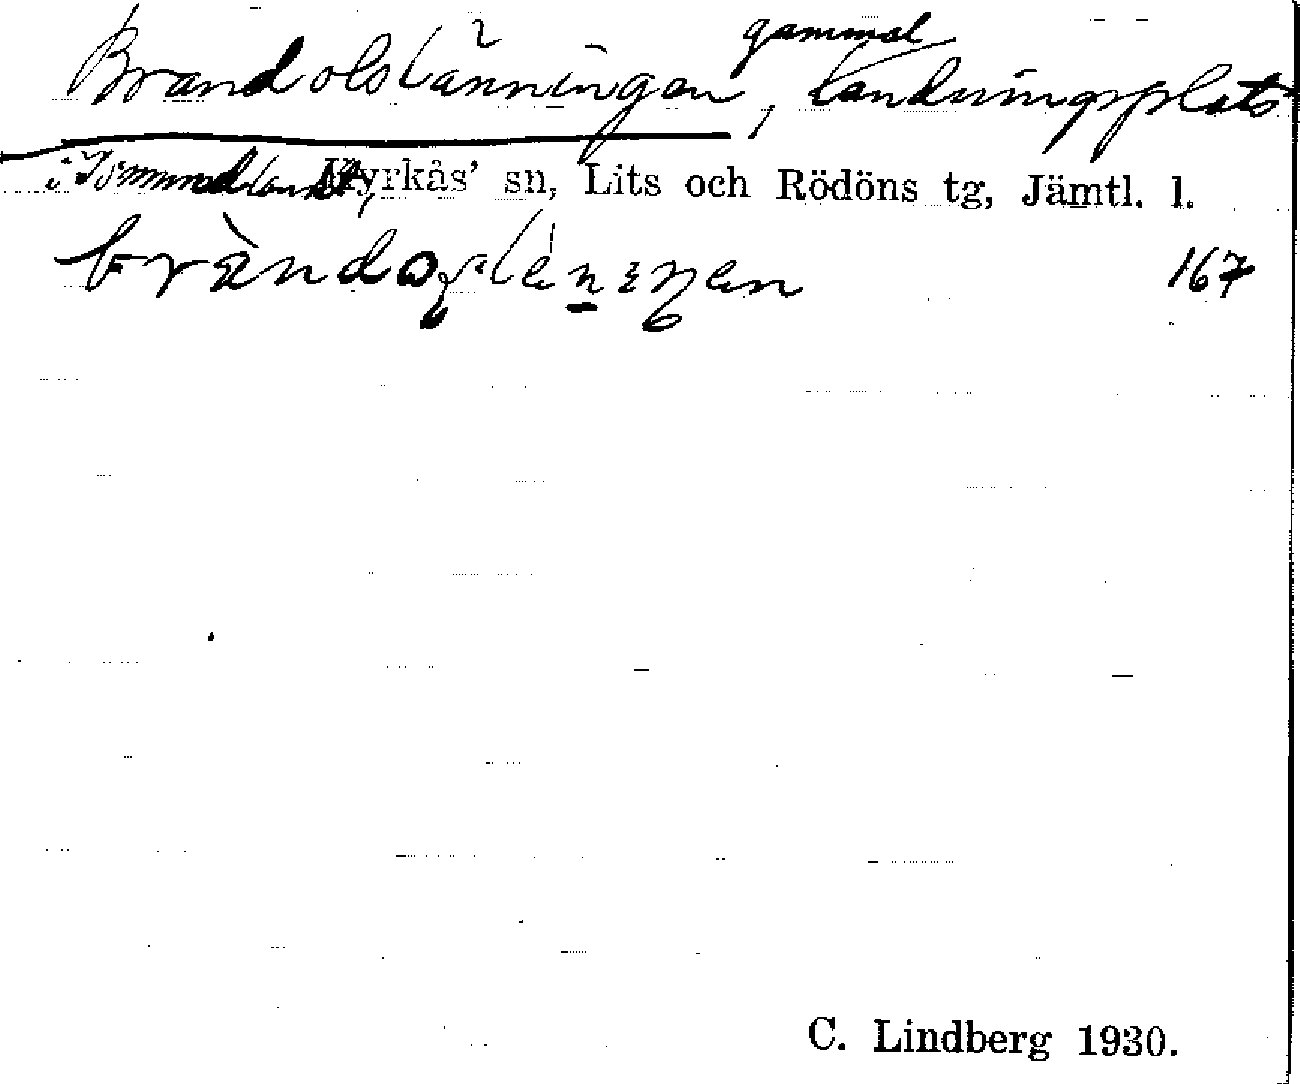 Brandolslänningen, gammal landningsplats
i Tomundlund, Kyrkås' sn, Lits och Rödöns tg, Jämtl. l.
167
C. Lindberg 1930.